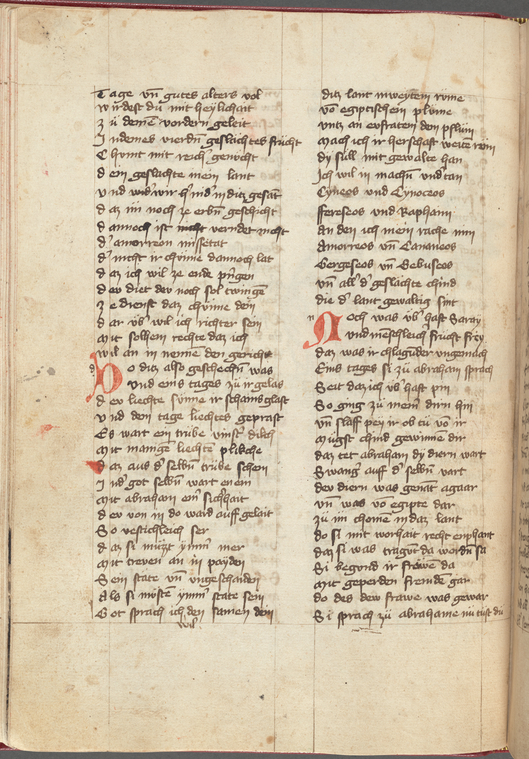 Tage vnd gutes alters vol
wirdest du mit heylichait
Zu deinē vordern geleit
In deines vierdn̄ geslächtes frücht
Chumt mit reich genücht
dein geslächte mein lant
vnd wirt
daz im noch ze erbn̄ geschicht
dannoch ist nicht verndet nicht
d' amorreon missetat
d' nicht ir chüme dannoch lat
daz ich wil ze ende pringen
der diet der noch sol twingē
Ze dienst daz chüme den
dar vb' wil ich richter sein
mit solhem rechte daz ich
wil an in nemē den gericht
Do ditz also geschechn̄ was
vnd eins tages zu
der liechte sunne ir schains glast
vnd dem tage liechtes geprast
Es wart ein trübe vinst' dikch
mit manige liechte plikche
daz aus d' selbn̄ trübe schein
vnd got selbn̄ wart enein
mit abraham ein sichhait
der von im do ward auff geleit
So vestichleich ser
daz si müzt ymm' mer
mit trewen an in payden
Sein state vn̄ vngeschaiden
Also si müste ymm' state sein
Got sprach ich den samen dein
wil
ditz lant in weytem rvme
vō egiptischem plvme
vntz an eufraten den pflum
mach ich ir herschaft weite rvm
dy süll mit gewalte han
Ich wil in machn̄ vndtan
Cyneos vnd Cynoceos
ffereseos vnd Raphaim
an den ich mein rache nim
Amorreos vn̄ Cananeos
Gergeseos vn̄ Gebuseos
vn̄ all d' geslächte chind
die d' lant gewaltig sint
Noch was vb'haft Saray
vnd menschleich frücht frey
daz was ir chlagüder vngemach
Eins tages si zu abraham sprach
Seit daz ich vb'haft pin
So ging zu meinē dirn hin
vn̄ slaff pey ir ob tu vō ir
mügst chind gewinnē dir
daz tet abraham dy diern wart
Swang' auff d' selbn̄ vart
dev diern was genāt agaar
vn̄ was vō egipte dar
zu im chomē in daz lant
do si mit worhait recht enphant
daz si was tragūt da wordn̄ sa
Si begund ir frawē da
mit geperden fremde gar
do des dew frawe was gewar
Si sprach zu abrahame nu tust du